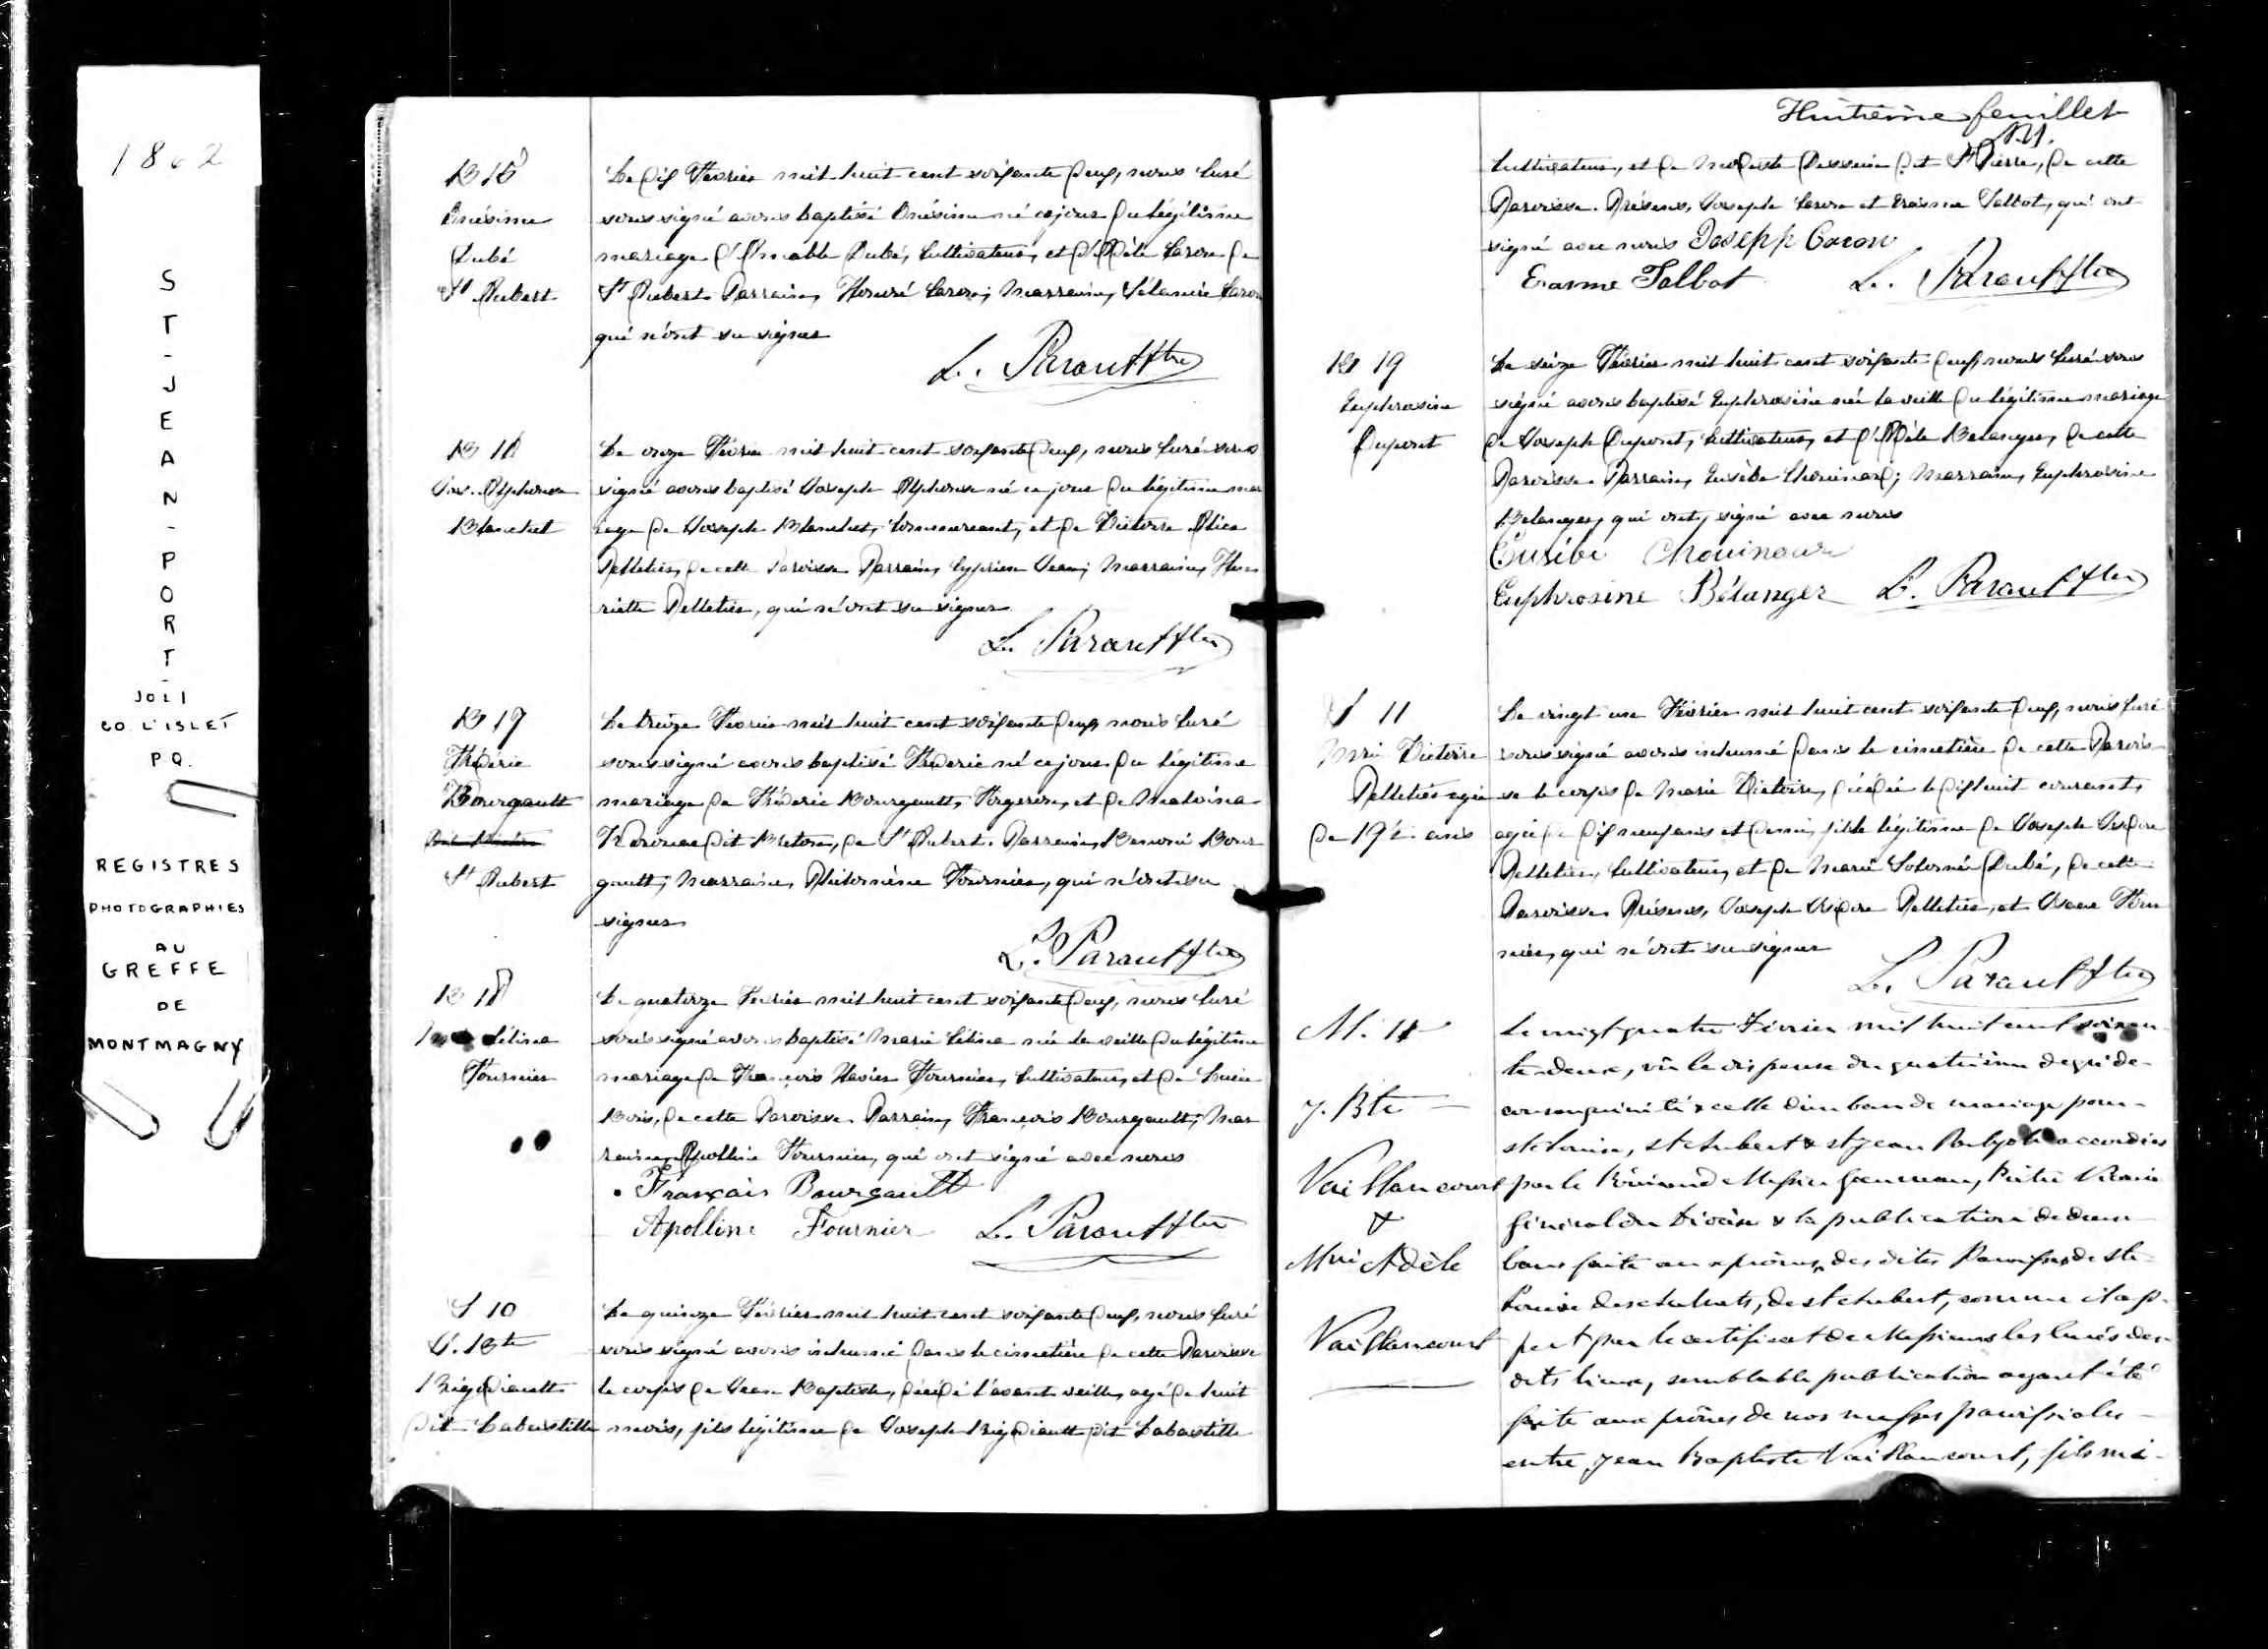 1862
S
T
-
J
E
A
N
-
P
O
R
T
-
JOLI
CO. L'ISLET
P.Q.
REGISTRES
PHOTOGRAPHIES
AU
GREFFE
DE
MONTMAGNY
B 15
Onésime
Dubé
St Aubert
Le dix Février mil huit cent soixante deux, nous Curé
soussigné avons baptisé Onésime né ce jour du légitime
mariage d'Amable Dubé, Cultivateur, et d'Adèle Caron de
St Aubert. Parrain, Honoré Caron; Marraine, Caron
qui n'ont su signer
L. Parant Ptre
B 16
Jos. Alphonse
Blanchet
Le onze Février mil huit cent soixante deux, nous Curé sous
signé avons baptisé Joseph Alphonse né ce jour du légitime mar
iage de Joseph Blanchet, Commercant, et de Victoire Alice
Pelletier, de cette Paroisse. Parrain, Cyprien Jean; Marraine, Hen
riette Pelletier, qui n'ont su signer
L. Parant Ptre
B 17
Fréderic
Bourgault
St Aubert
Le treize Février mil huit cent soixante deux, nous Curé
soussigné avons baptisé Fréderic né ce jour du légitime
mariage de Fréderic Bourgault, Forgeron, et de Malvina
Kerouac dit Breton, de St Aubert. Parrain, Benoni Bour
gault; Marraine, Philomène Fournier, qui n'ont su
signer
L. Parant Ptre
B 18
Célina
Fournier
Le quatorze Février mil huit cent soixante deux, nous Curé
soussigné avons baptisé Marie Célina née la veille du légitime
mariage de François Xavier Fournier, Cultivateur, et de Lucie
Bois, de cette Paroisse. Parrain, François Bourgault; Mar
raine, Apolline Fournier, qui ont signé avec nous
François Bourgault
Apolline Fournier L. Parant Ptre
S 10
J. Bte
Rigdiault
dit Labastille
Le quinze Février mil huit cent soixante deux, nous Curé
soussigné avons inhumé dans le cimetière de cette Paroisse
le corps de Jean Baptiste, décédé l'avant veille, agé de huit
mois, fils légitime de Joseph Rigdiault dit Labastille
Huitième feuillet
Cultivateur, et de Modeste dit St Pierre, de cette
Paroisse. Présens, Joseph Caron et Erasme Talbot, qui ont
signé avec nous Joseph Caron
Erasme Talbot L. Parant Ptre
B 19
Euphrosine
Dupont
Le seize Février mil huit cent soixante deux, nous Curé sous
signé avons baptisé Euphrosine née la veille du légitime mariage
de Joseph Dupont, Cultivateur, et d'Adèle Belanger, de cette
Paroisse. Parrain, Eusèbe Chouinard; Marraine, Euphrosine
Belanger, qui ont signé avec nous
Eusèbe Chouinard
Euphrosine Bélanger L. Parant Ptre
S 11
Mrie Victoire
Pelletier agée
de 19½ ans
Le vingt un Février mil huit cent soixante deux, nous Curé
soussigné avons inhumé dans le cimetière de cette Parois
se le corps de Marie Victoire, décédée le dix huit courant,
agée de dix neuf ans et demi, fille légitime de Joseph Isidore
Pelletier, Cultivateur, et de Marie Salomée Dubé, de cette
Paroisse. Présens, Joseph Isidore Pelletier, et Isaac Four
nier, qui n'ont su signer
L. Parant Ptre
M. 4
J. Bte
Vaillancourt
&
Mrie Adèle
Vaillancourt
Le vingt quatre Février mil huit cent soixan
te-deux, vû la dispense du quatrième degré de
consanguinité & celle d'un ban de mariage pour
ste Louise, st Aubert & st Jean Port Joli accordées
par le Révérend Messire Prêtre Vicaire
Général du Diocèse & la publication de deux
bans faite aux prônes des dites Paroisses de Ste
Louise des Aulnets, de st Aubert, comme il ap-
pert par le certificat de Messieurs les Curés des
dits lieux, semblable publication ayant été
faite aux prônes de nos messes paroissiales
entre Jean Baptiste Vaillancourt, fils mi-